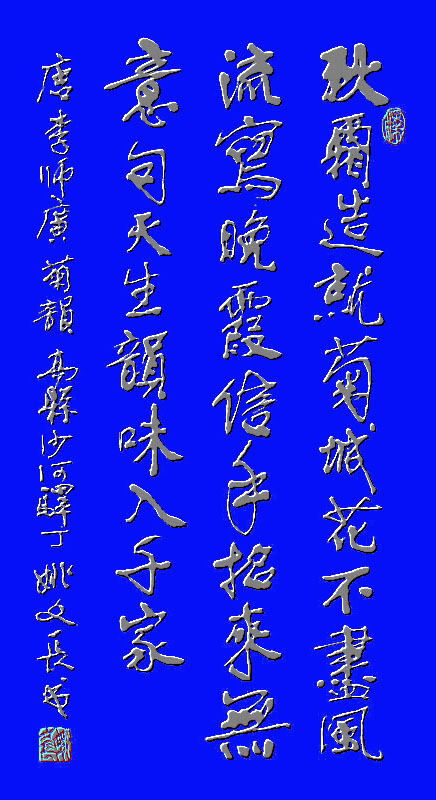 秋霜造就菊城花不盡風
流寫晚霞信手招來無
意句天生韻味入千家
唐李師廣菊韻 高縣沙河驛丁姚文長書